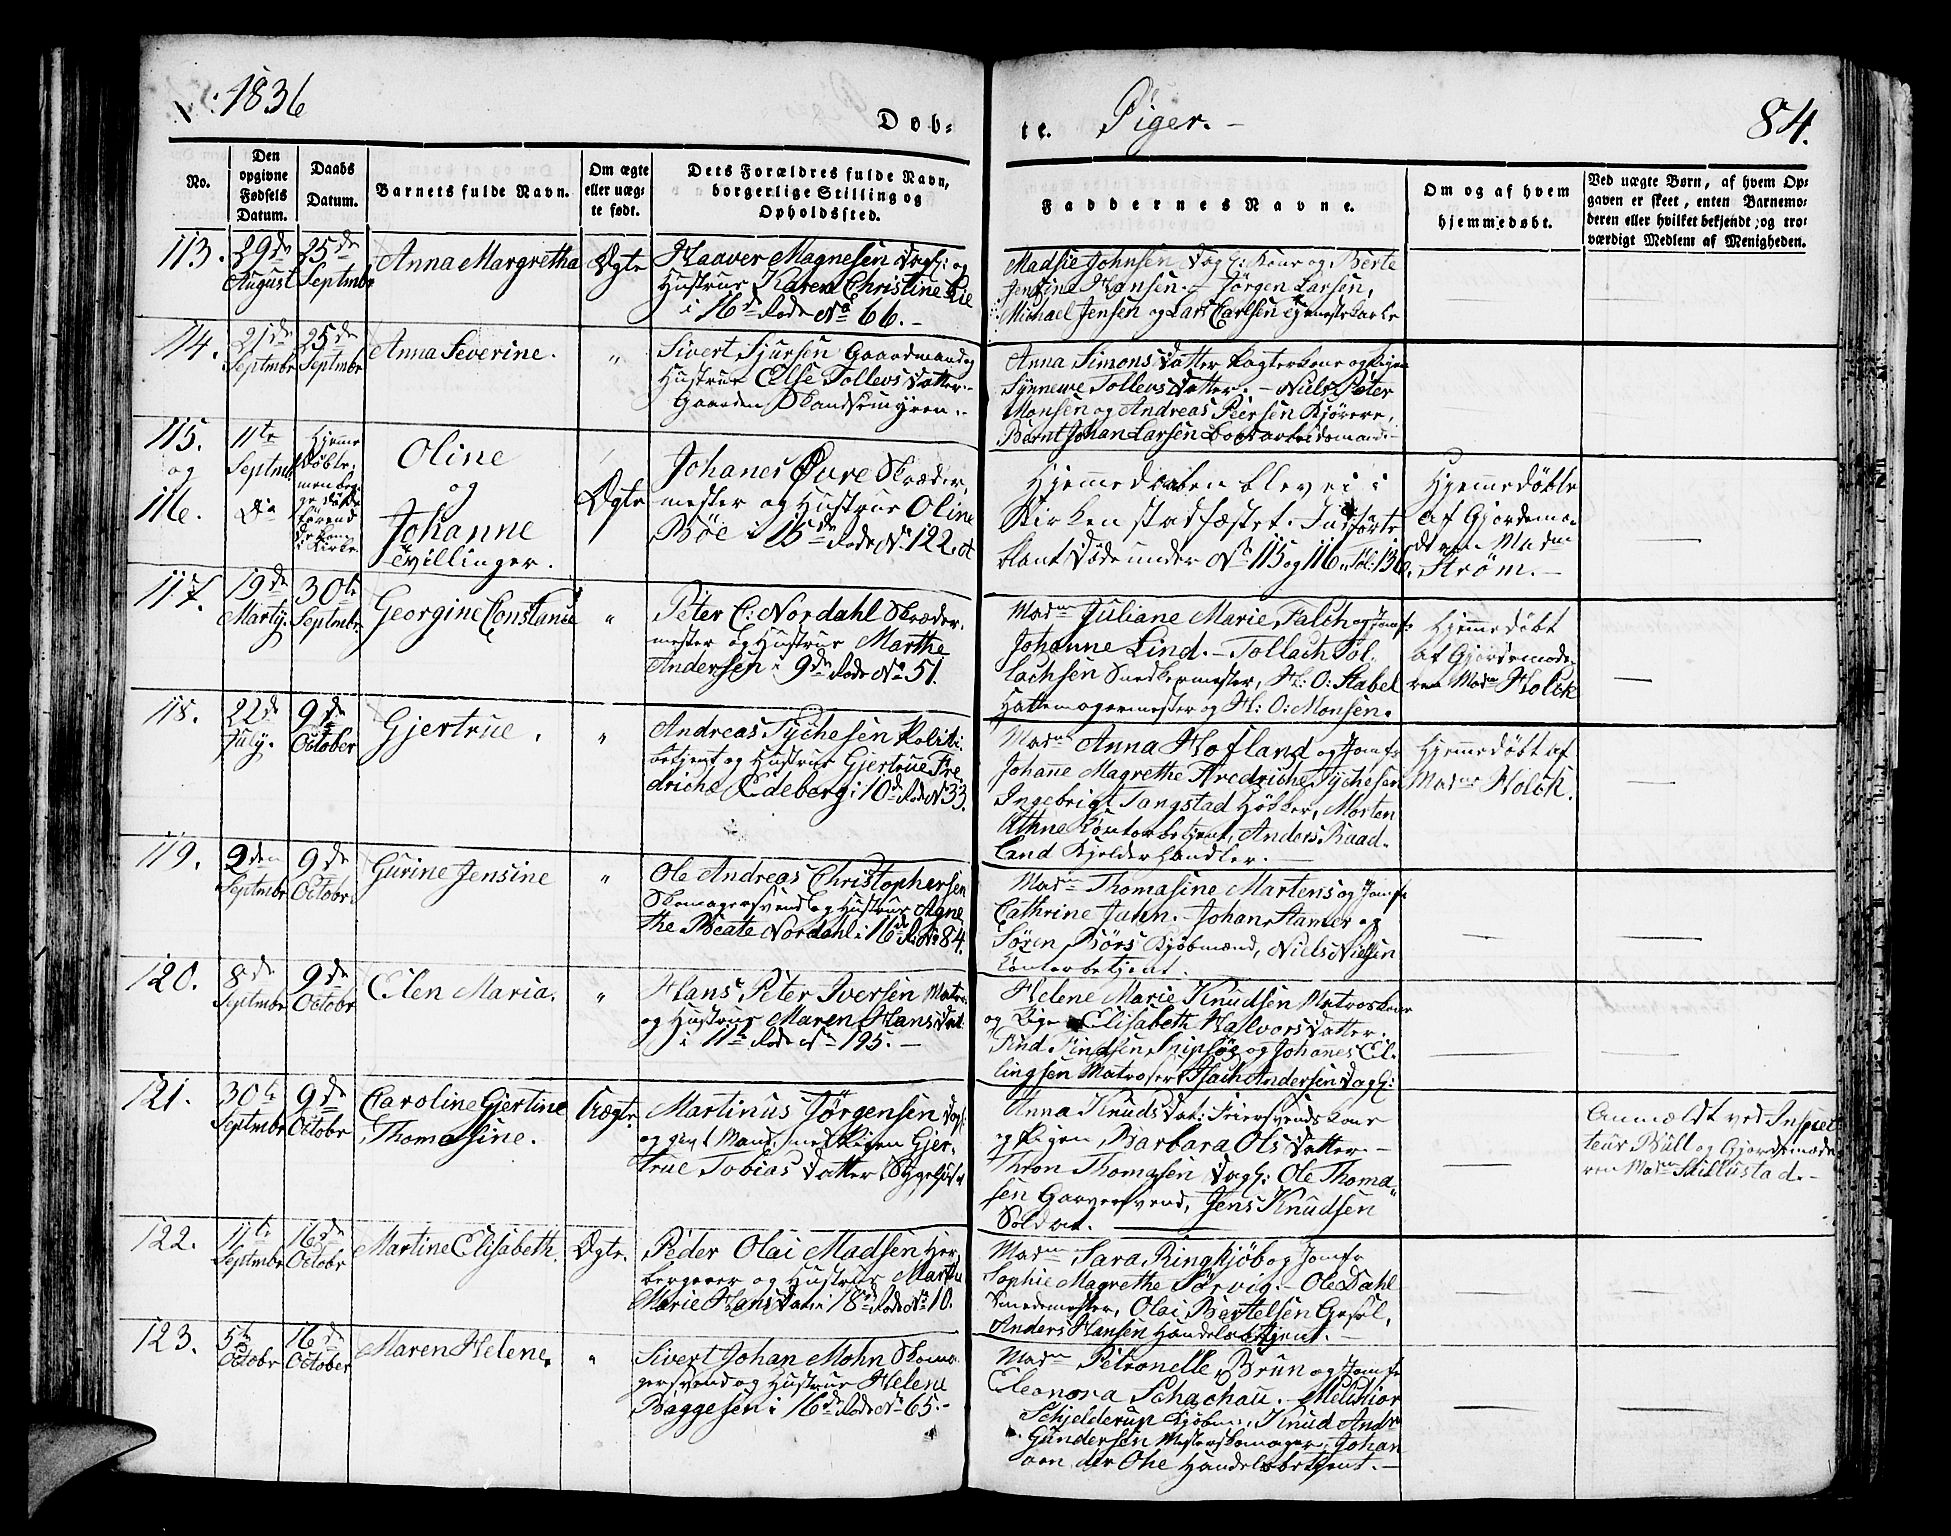 1836
Døb-
te.
Piger. -
84.
No.
Den
opgivne
Fødsels
Datum.
Daabs
Datum.
Barnets fulde Navn.
Om ægte
eller uæg-
te født.
Dets Forældres fulde Navn,
borgerlige Stilling og
Opholdssted.
Faddernes Navne.
Om og af hvem
hjemmedøbt.
Ved uægte Børn, af hvem Op-
gaven er skeet, enten Barnemo-
deren eller hvilket bekjendt, og tro-
værdigt Medlem af Menigheden.
113.
29de
August
25de
Septmbr
Anna Margretha
Ægte
Haaver Magnesen Dagl: og
Hustrue Karen Christine Lie
i 16de Rode No 66. -
Madsie Johnsen Dagl: Kone og Berte
Jensine Hansen. - Jørgen Larsen,
Michael Jensen og Lars Carlsen tjenestekarle
114.
21de
Septmbr
25de
Septmbr
Anna Severine.
"
Sivert Sjursen Gaardmand og
Hustrue Else Tollevs Datter
Gaarden
Anna Simons Datter
Synneve Tollevs Datter. - Niels Peter
Monsen og Andreas Peersen Kjørere,
Bernt Johan Larsen
115.
og
116.
11te
Septmbr
Do
Hjemme
døbte,
Oline
og
Johanne
Tvillinger.
Ægte
Johanes Øvre Skræder
mester og Hustrue Oline
Bøe i 15de Rode No 122.
Hjemmedaaben blev ei i
Kirken stadfæstet. Indførte
blant Døde under No 115 og 116, Fol: 136.
Hjemmedøbte
af Gjordemo-
deren Madm
Strøm. -
117.
19de
Martij.
30te
Septmbr
Georgine Constance
"
Peter C: Nordahl Skræder-
mester og Hustrue Marthe
Andersen i 9de Rode No 51.
Madm Juliane Marie Falch og Jomfr
Johanne Lind. - Tollach Tol-
lachsen Snedkermester, H: O: Stabel
Hattemagermester og H: O: Monsen.
Hjemmedøbt
af Gjordemode-
ren Madm Holck
118.
22de
July.
9de
October
Gjertrue.
"
Andreas Tychesen Politi-
betjent og Hustrue Gjertrue Fre-
driche Edeborg i 10de Rode No 33.
Madm Anna Hofland og Jomfr
Johane Magrethe Fredriche Tychesen
Ingebrigt Tangstad Høker, Morten
Athne Kontorbetjent, Anders Raad-
land Kjelderhandler.
Hjemmedøbt af
Madm Holck.
119.
2den
Septmbr
9de
Octobr
Gurine Jensine
"
Ole Andreas Christophersen
Skomagersvend og Hustrue Agne-
the Beate Nordahl i 16de R: No 84.
Madm Thomasine Martens og Jomfr
Cathrine Jahn. - Johan Stamer og
Søren Børs Kjøbmænd, Niels Nielsen
Kontorbetjent.
120.
8de
Septmbr
9de
Octobr
Elen Maria.
"
Hans Peter Iversen Matro
og Hustrue Maren Hans Dat
i 11te Rode No 195. -
Helene Marie Knudsen Matroskone
og Pige Elisabeth Halvors Datter.
Johanes El-
lingsen Matroser, Isach Andersen Dagl:
121.
30te
Septmbr
9de
Octobr
Caroline Gjertine
Thomasine.
Uægte.
Martinus Jørgensen Dagl:
og givt Mand, med Pigen Gjer-
true Tobias Datter
Anna Knuds Dat: Feiersvends kone
og Pigen Barbara Ols Datter. -
Thron Thomasen Dagl: Ole Thoma-
sen Garversvend, Jens Knudsen
Soldat.
Anmældt ved Inspec
teur Bull og Gjordemode
ren Madm Stillustad. -
122.
11te
Septmbr
16de
Octobr
Martine Elisabeth.
Ægte.
Peder Olai Madsen Her-
bergerer og Hustrue Martha
Marie Hans Dat: i 18de Rode No 10.
Madm Sara Ringkjøb og Jomfr
Sophie Magrethe Sørvig. - Ole Dahl
Smedemester, Olai Bertelsen Gesel,
Anders Hansen Handelsbetjent. -
123.
5te
Octobr
16de
October
Maren Helene.
"
Sivert Johan Mohn Skoma-
gersvend og Hustrue Helene
Baggesen i 16de Rode No 65. -
Madm Petronelle Brun og Jomfr
Eleonora Schachau. - Melchior
Schjelderup Kjøbm:, Knud Andr
Gundersen Mesterskomager, Johan
von der Ohe Handelsbetjent. -